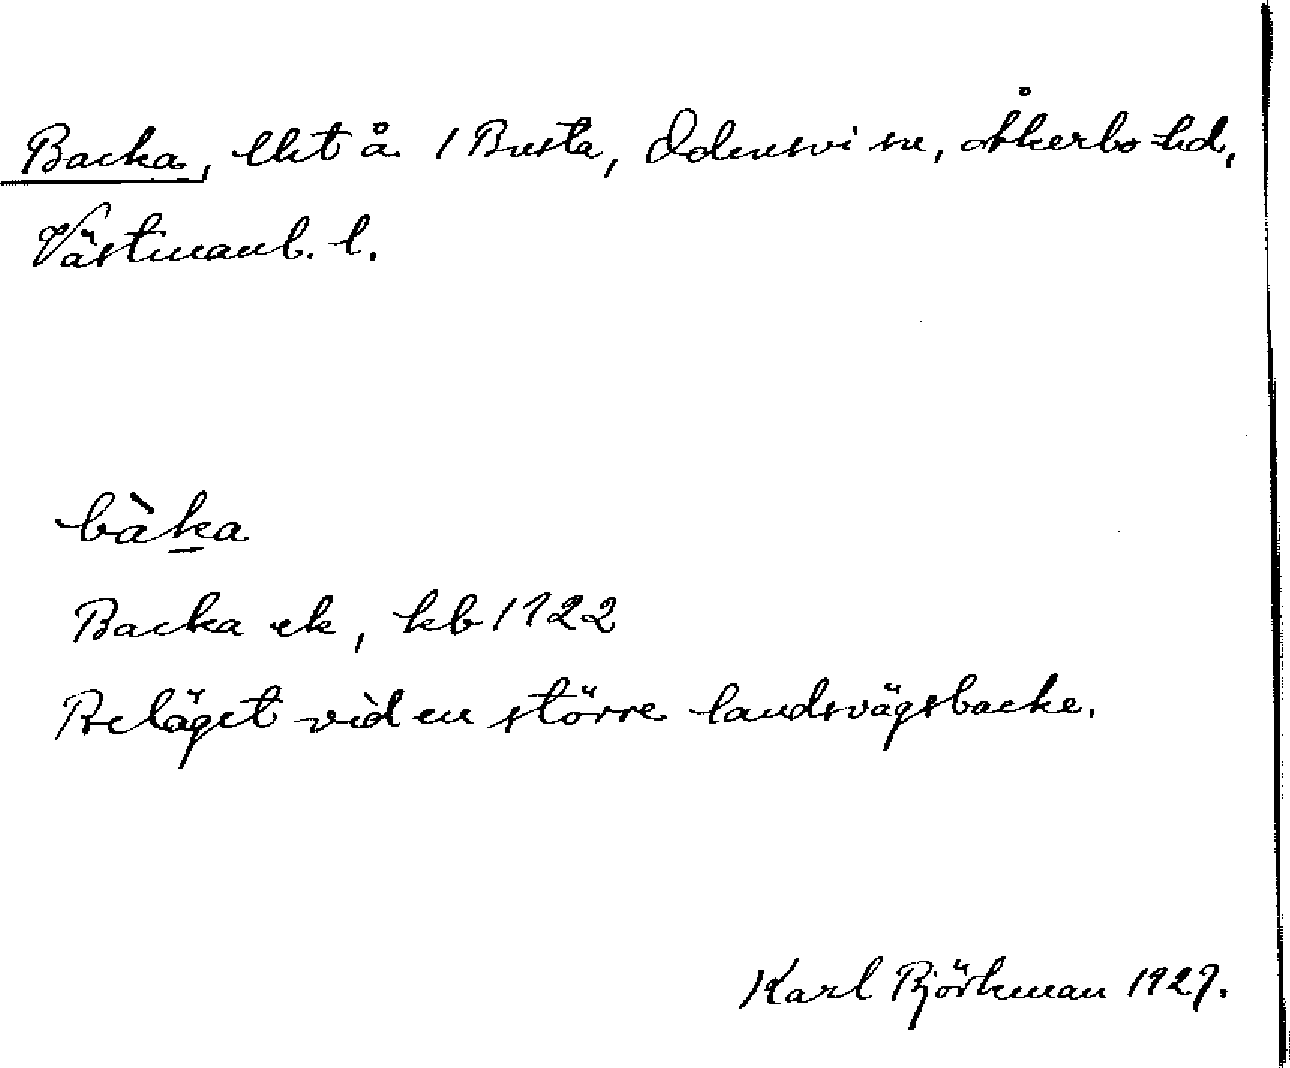 Backa, lht å 1 Busta, Odensvi sn, Åkerbo hd,
Västmanl. l.
bàka
Backa ek, kb 1722
Beläget vid en större landsvägsbacke.
Karl Björkman 1927.